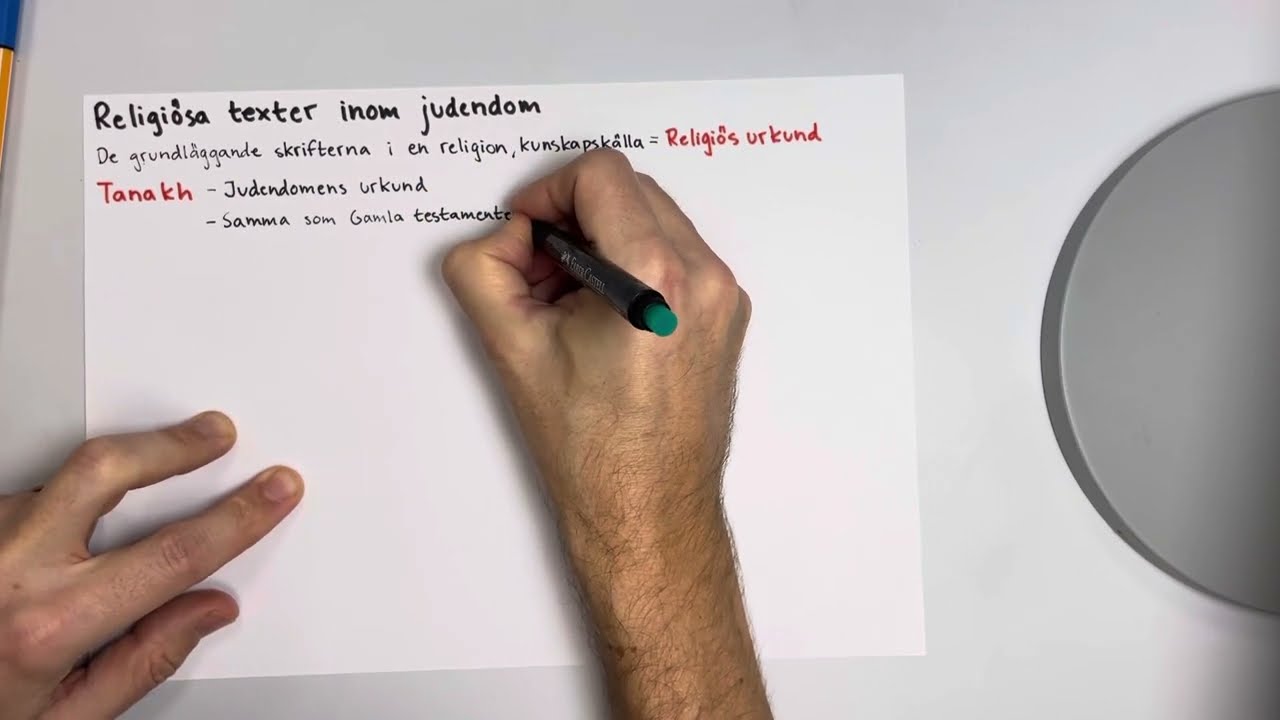 Religiösa texter inom judendom
De grundläggande skrifterna i en religion, kunskapskälla = Religiös urkund
Tanakh - Judendomens urkund
- Samma som Gamla testamente
FABER CASTELL